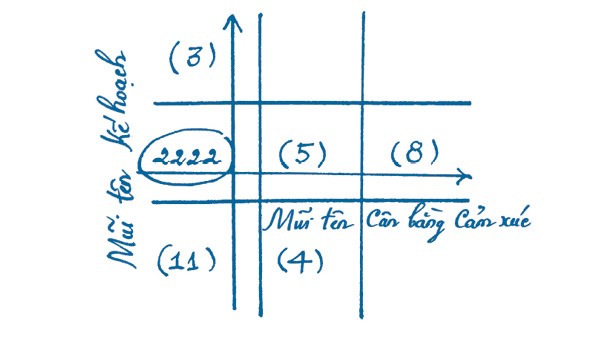 (3)
Mũi tên Kế hoạch
2222 (5) (8)
Mũi tên Cân bằng Cảm xúc
(11) (4)